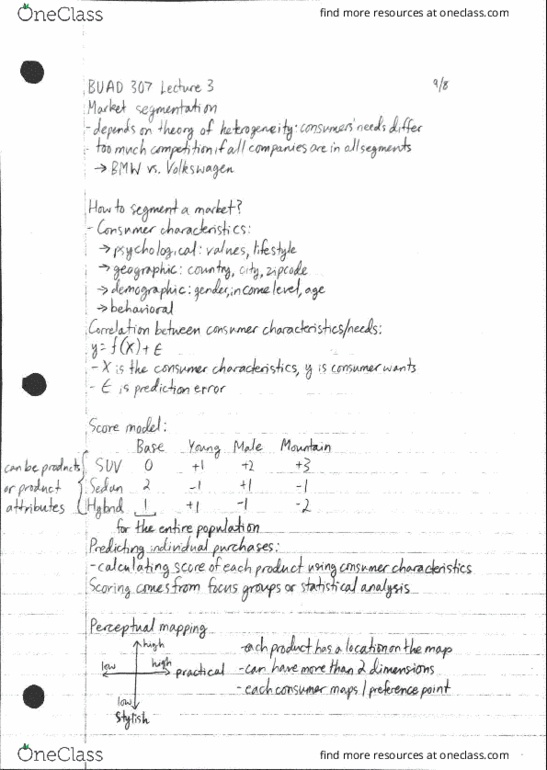 OneClass find more resources at oneclass.com
BUAD 307 Lecture 3 9/8
Market segmentation
- depends on theory of heterogeneity: consumers' needs differ
- too much competition if all companies are in all segments
→ BMW vs. Volkswagen
How to segment a market?
- Consumer characteristics:
→ psychological: values, lifestyle
→ geographic: country, city, zipcode
→ demographic: gender, income level, age
→ behavioral
Correlation between consumer characteristics/needs:
y = f(X) + ε
- X is the consumer characteristics, y is consumer wants
- ε is prediction error
Score model:
Base Young Male Mountain
can be products SUV 0 +1 +2 +3
or product Sedan 2 -1 +1 -1
attributes Hybrid 1 +1 -1 -2
for the entire population
Predicting individual purchases:
- calculating score of each product using consumer characteristics
Scoring comes from focus groups or statistical analysis
Perceptual mapping
high - each product has a location on the map
low high practical - can have more than 2 dimensions
low - each consumer maps 1 preference point
Stylish
OneClass find more resources at oneclass.com